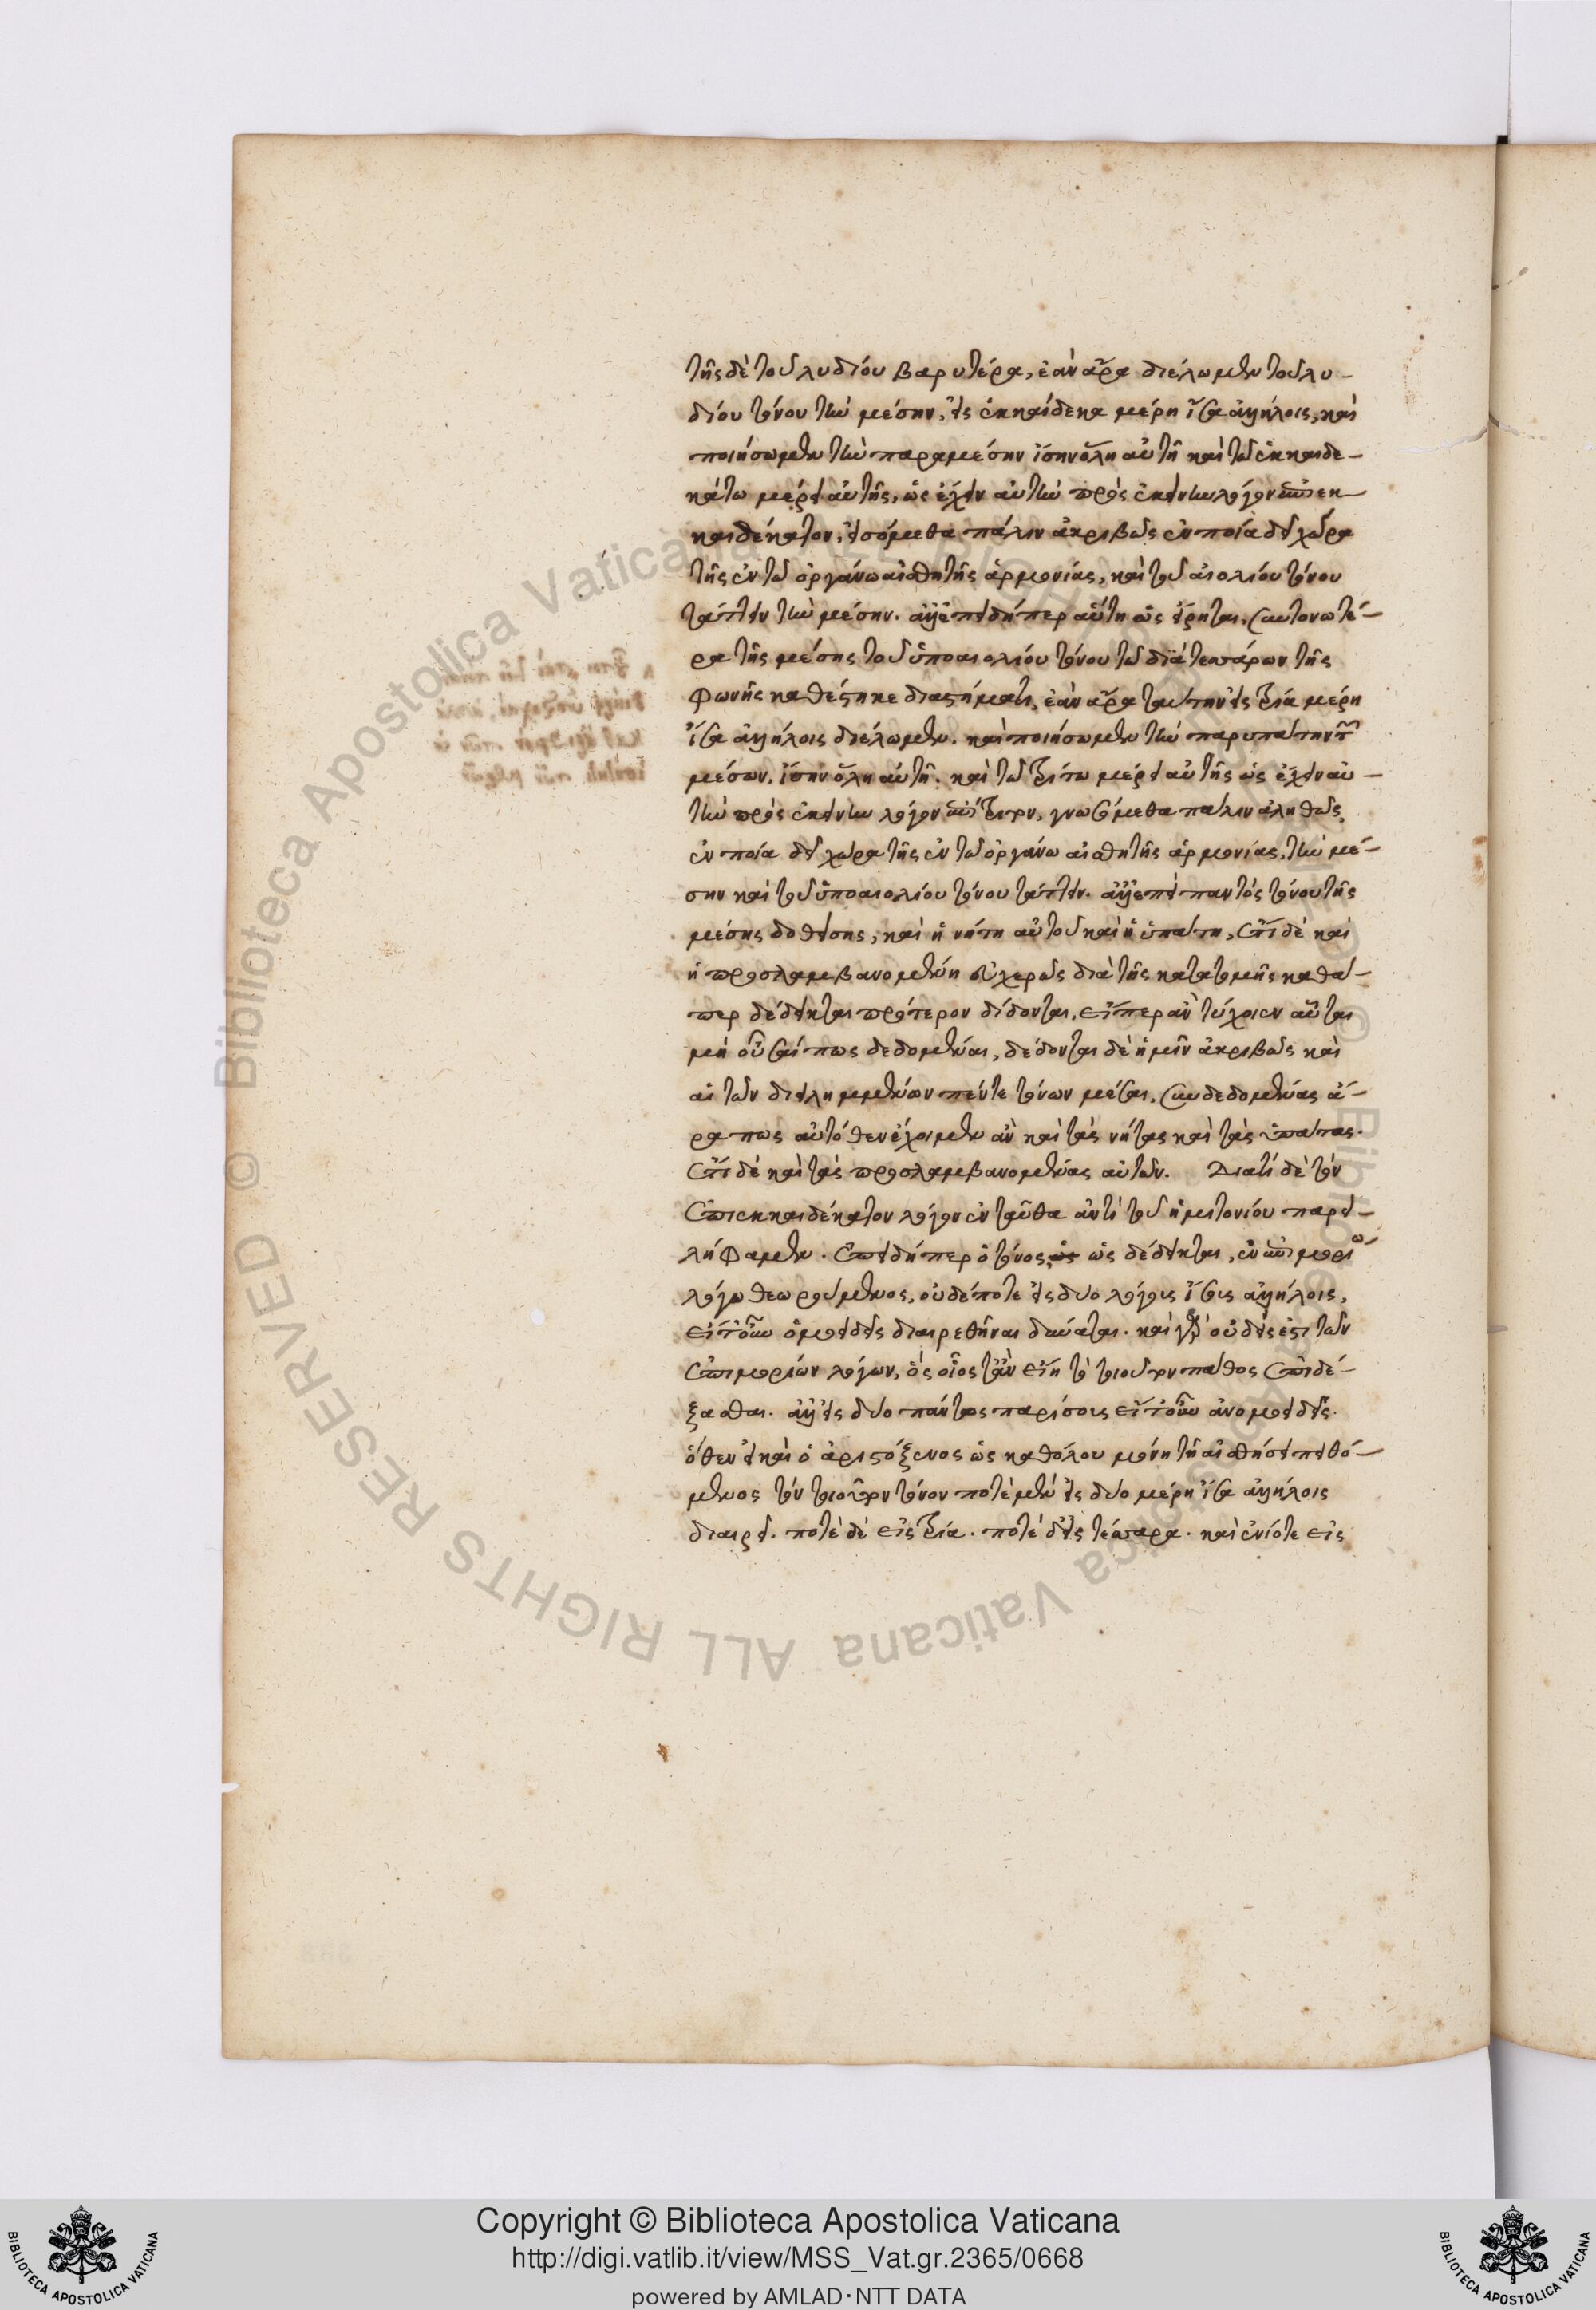 τῆς δὲ τοῦ λυδίου βαρυτέρα, ἐὰν ἄρα διέλωμεν τοῦ λυ-
δίου τόνου τὴν μέσην, εἰς ἑκκαίδεκα μέρη ἴσα ἀλλήλοις, καὶ
ποιήσωμεν τὴν παραμέσην ἴσην ὅλη αὐτῆ καὶ τῶ ἑκκαιδε-
κάτω μέρει αὐτῆς, ὡς ἔχειν αὐτὴν πρὸς ἐκείνην λόγον ἐπὶ εκ
καιδέκατον, εἰσόμεθα πάλιν ἀκριβῶς ἐν ποία δεῖ χώρα
τῆς ἐν τῶ ὀργάνω αἰσθητῆς ἁρμονίας, καὶ τοῦ αἰολίου τόνου
τάττειν τὴν μέσην. ἀλλ' ἐπειδήπερ αὕτη ὡς εἴρηται, συντονωτέ-
ρα τῆς μέσης τοῦ ὑποαιολίου τόνου τῶ διὰ τεσσάρων τῆς
φωνῆς καθέστηκε διαστήματι, ἐὰν ἄρα ταύτην εἰς τρία μέρη
ἴσα ἀλλήλοις διέλωμεν. καὶ ποιήσωμεν τὴν παρυπάτην τῶν
μέσων, ἴσην ὅλη αὐτῆ. καὶ τῶ τρίτω μέρει αὐτῆς ὡς ἔχειν αὐ-
τὴν πρὸς ἐκείνην λόγον ἐπίτριτον, γνωσόμεθα πάλιν ἀληθῶς,
ἐν ποία δεῖ χώρα τῆς ἐν τῶ ὀργάνω αἰσθητῆς ἁρμονίας, τὴν μέ-
σην καὶ τοῦ ὑποαιολίου τόνου τάττειν. ἀλλ' ἐπεὶ παντὸς τόνου τῆς
μέσης δοθείσης, καὶ ἡ νήτη αὐτοῦ καὶ ἡ ὑπάτη, ἔτι δὲ καὶ
ἡ προσλαμβανομένη εὐχερῶς διὰ τῆς κατατομῆς καθά-
περ δέδεικται πρότερον δίδονται, εἴπερ ἂν τύχοιεν αὗται
μὴ οὖσαί πως δεδομέναι, δέδονται δὲ ἡμῖν ἀκριβῶς καὶ
αἱ τῶν διειλημμένων πέντε τόνων μέσαι, συνδεδομένας ἄ-
ρα πως αὐτόθεν ἔχοιμεν ἂν καὶ τὰς νήτας καὶ τὰς ὑπάτας.
ἔτι δὲ καὶ τὰς προσλαμβανομένας αὐτῶν. Διατί δὲ τὸν
ἐπιεκκαιδέκατον λόγον ἐνταῦθα ἀντὶ τοῦ ἡμιτονίου παρει-
λήφαμεν. ἐπειδήπερ ὁ τόνος, ὡς δέδεικται, ἐν ἐπιμορίω
λόγω θεωρούμενος, οὐδέποτε εἰς δύο λόγους ἴσους ἀλλήλοις,
εἴτουν ὁμοειδεῖς διαιρεθῆναι δύναται. καὶ γὰρ οὐδείς ἐστι τῶν
ἐπιμορίων λόγων, ὃς οἷός τ' ἂν εἴη τὸ τοιοῦτον πάθος ἐπιδέ-
ξασθαι. ἀλλ' εἰς δύο πάντως παρίσους εἴτουν ἀνομοειδεῖς.
ὅθεν εἰ καὶ ὁ ἀριστόξενος ὡς καθόλου μόνη τῆ αἰσθήσει πειθό-
μενος τὸν τοιοῦτον τόνον ποτὲ μὲν εἰς δύο μέρη ἴσα ἀλλήλοις
διαιρεῖ. ποτὲ δὲ εἰς τρία. ποτὲ δ' εἰς τέσσαρα. καὶ ἐνίοτε εἰς
Copyright © Biblioteca Apostolica Vaticana
http://digi.vatlib.it/view/MSS_Vat.gr.2365/0668
powered by AMLAD·NTT DATA
BIBLIOTECA APOSTOLICA VATICANA
BIBLIOTECA APOSTOLICA VATICANA
© Biblioteca Apostolica Vaticana ALL RIGHTS RESERVED
© Biblioteca Apostolica Vaticana ALL RIGHTS RESERVED